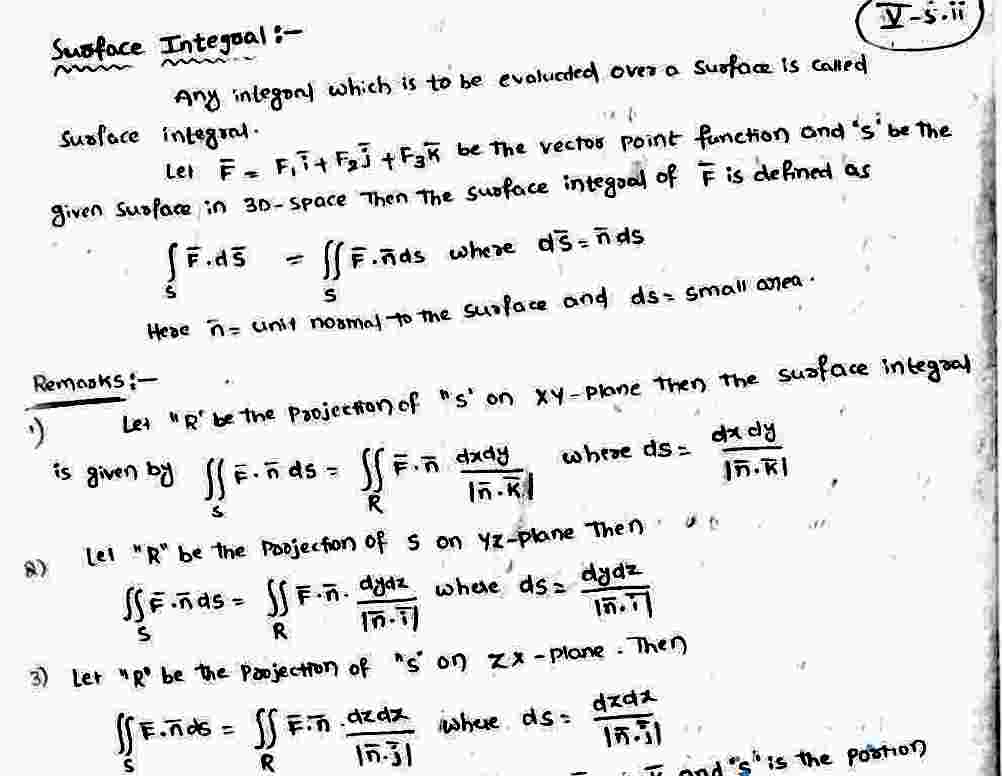 V-S.ii
Surface Integral :-
Any integral which is to be evaluated over a surface is called
Surface integral.
Let F̄ = F₁ī + F₂j̄ + F₃k̄ be the vector point function and 's' be the
given surface in 3D-space Then The surface integral of F̄ is defined as
∫_S F̄.ds̄ = ∬_S F̄.n̄ds where ds̄ = n̄ ds
Here n̄ = unit normal to the surface and ds = small area.
Remarks :-
1) Let "R" be the Projection of "s" on XY-Plane Then The surface integral
is given by ∬_S F̄.n̄ ds = ∬_R F̄.n̄ dxdy/|n̄.k̄| where ds = dx dy/|n̄.k̄|
2) Let "R" be the Projection of S on YZ-plane Then
∬_S F̄.n̄ ds = ∬_R F̄.n̄. dydz/|n̄.ī| where ds = dydz/|n̄.ī|
3) Let "R" be the Projection of "s" on ZX-Plane. Then
∬_S F̄.n̄ ds = ∬_R F̄.n̄ .dzdx/|n̄.j̄| where ds = dzdx/|n̄.j̄|
and "s" is the portion